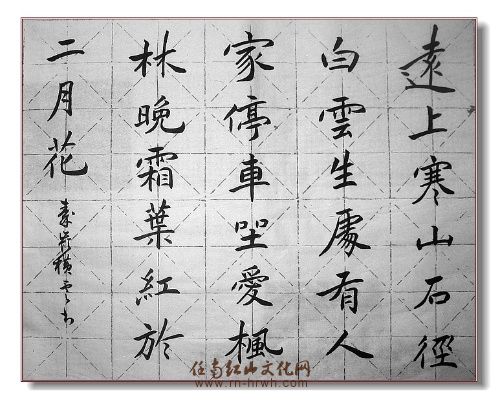 遠上寒山石徑
白雲生處有人
家停車坐愛楓
林晚霜葉紅於
二月花
www.rn-hrwh.com